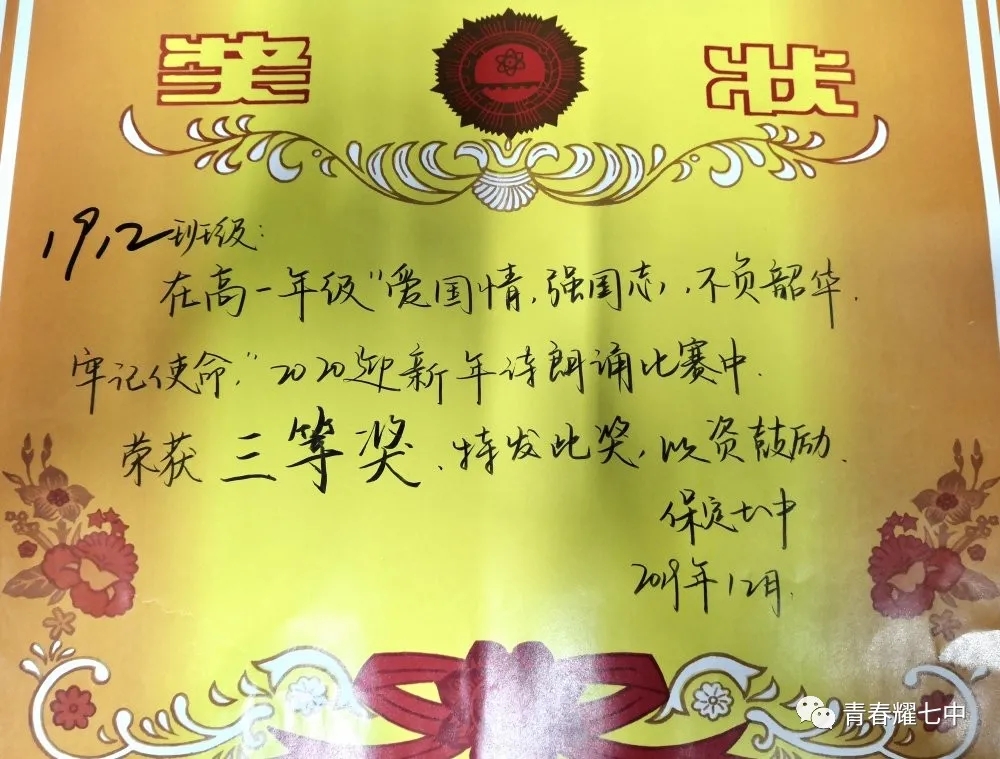 奖 状
1912班级:
在高一年级"爱国情,强国志,不负韶华.
牢记使命,"2020迎新年诗朗诵比赛中.
荣获 三等奖、特发此奖,以资鼓励.
保定七中
2019年12月.
青春耀七中